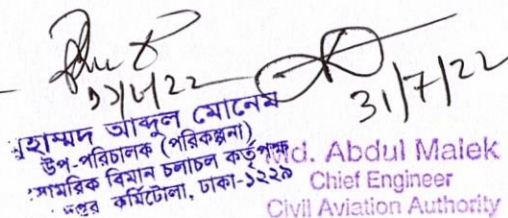 31/7/22
মোহাম্মদ আব্দুল মোনেম
উপ-পরিচালক (পরিকল্পনা)
বেসামরিক বিমান চলাচল কর্তৃপক্ষ
সদর কুর্মিটোলা, ঢাকা-১২২৯
Md. Abdul Malek
Chief Engineer
Civil Aviation Authority